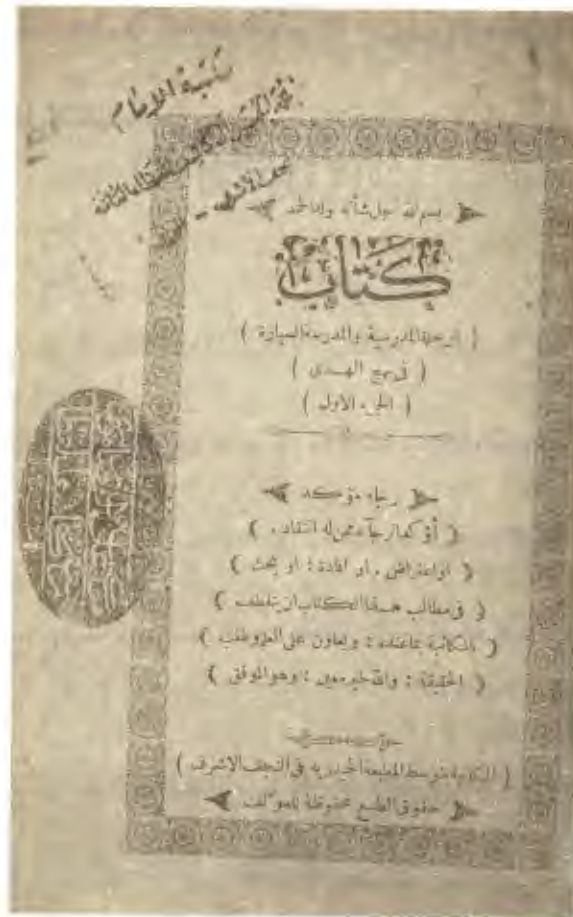 مكتبة الامام
بسم الله جل شأنه وله الحمد
كتاب
( الرحلة المدرسية والمدرسة السيارة )
( في نهج الهدى )
( الجزء الاول )
رجاء مؤكد
( أؤكد الرجاء ممن له انتقاد ، )
( او اعتراض ، او افادة ؛ او بحث )
( في مطالب هذا الكتاب ان يتلطف )
( بالمكاتبة بما عنده ؛ ونعاون على العلم وطلب )
( الحقيقة ؛ والله خير معين ؛ وهو الموفق )
( المكاتبة بتوسط المطبعة الحيدريه في النجف الاشرف )
حقوق الطبع محفوظة للمؤلف